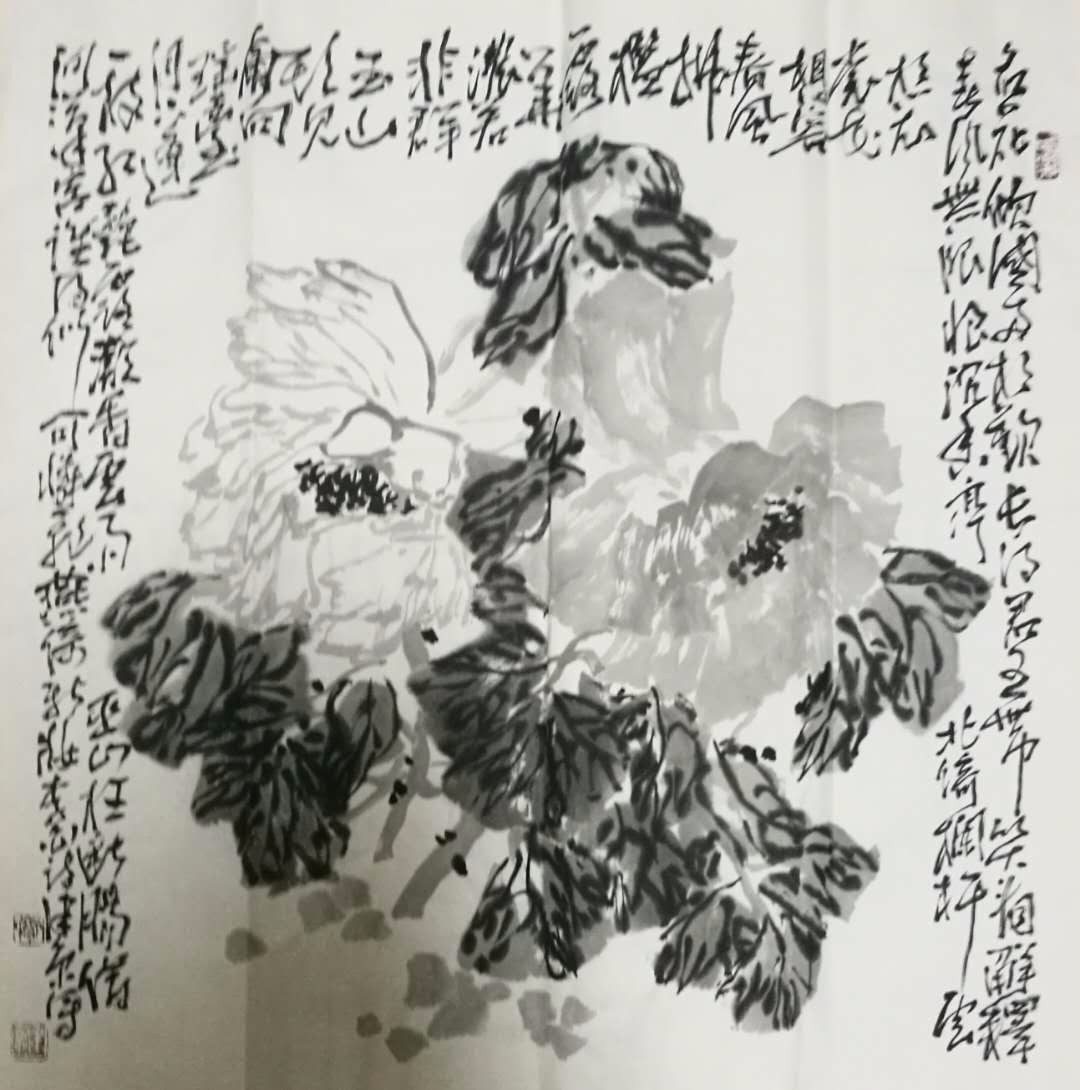 名花傾國兩相歡長得君王帶笑看解釋
春風無限恨沉香亭北倚欄杆雲
想衣
裳花
想容
春風
拂
檻
露
華
濃若
非群
玉山
頭見
會向
瑤臺
月下逢
一枝紅艷露凝香雲雨巫山枉斷腸借
問漢宮誰得似可憐飛燕倚新妝李白詩